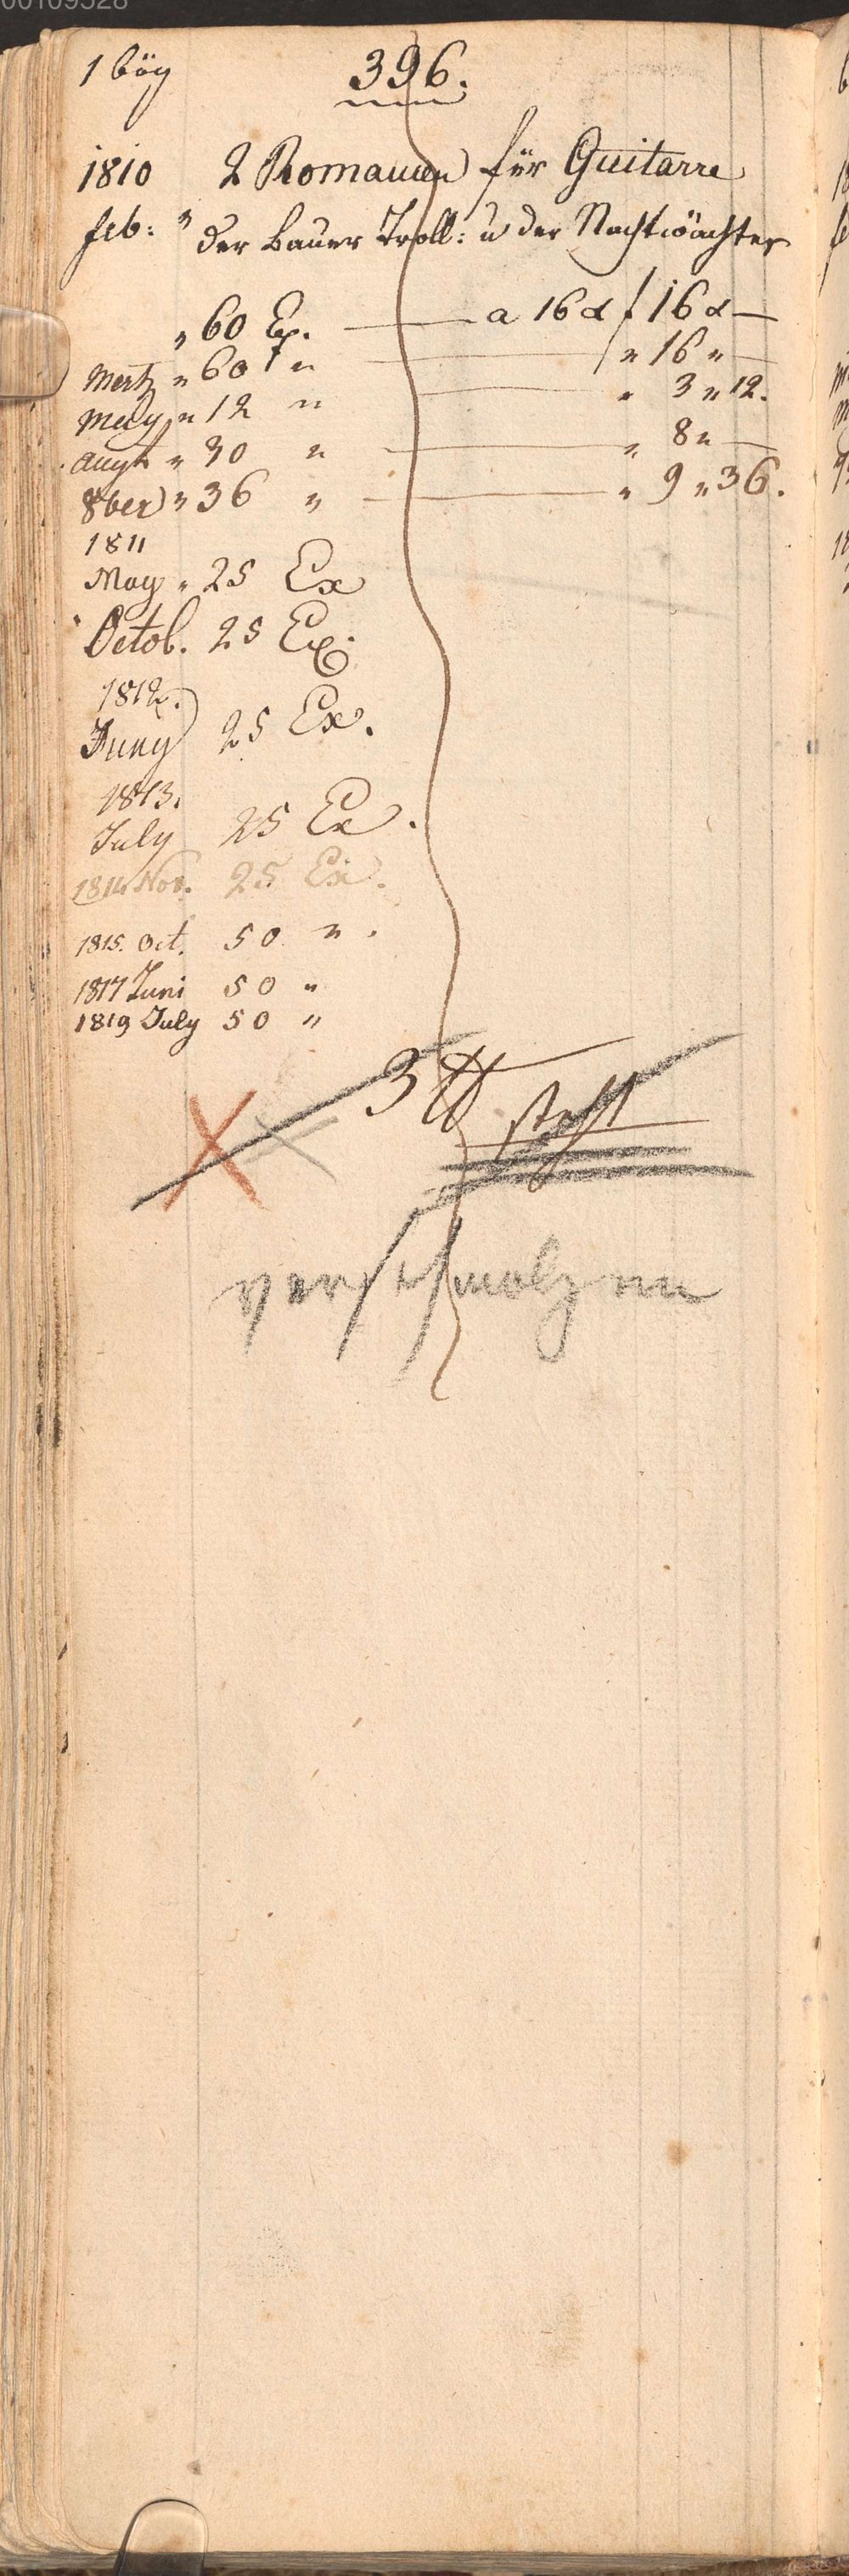 00109528
1 bög
396.
1810 2 Romanzen für Guitarre
feb: " der Bauer Troll: u der Nachtwächter
" 60 Ex. — a 16 x f 16 x —
Mertz " 60 " — " 16 " —
Mey " 12 " — " 3 " 12.
Augt " 30 " — " 8 " —
8ber " 36 " — " 9 " 36.
1811
May " 25 Ex
Octob. 25 Ex.
1812.
Juny 25 Ex.
1813.
July 25 Ex.
1814 Nov. 25 Ex.
1815. Oct. 50 " .
1817 Juni 50 "
1819 July 50 "
3 ℔
steht
verschmolzen